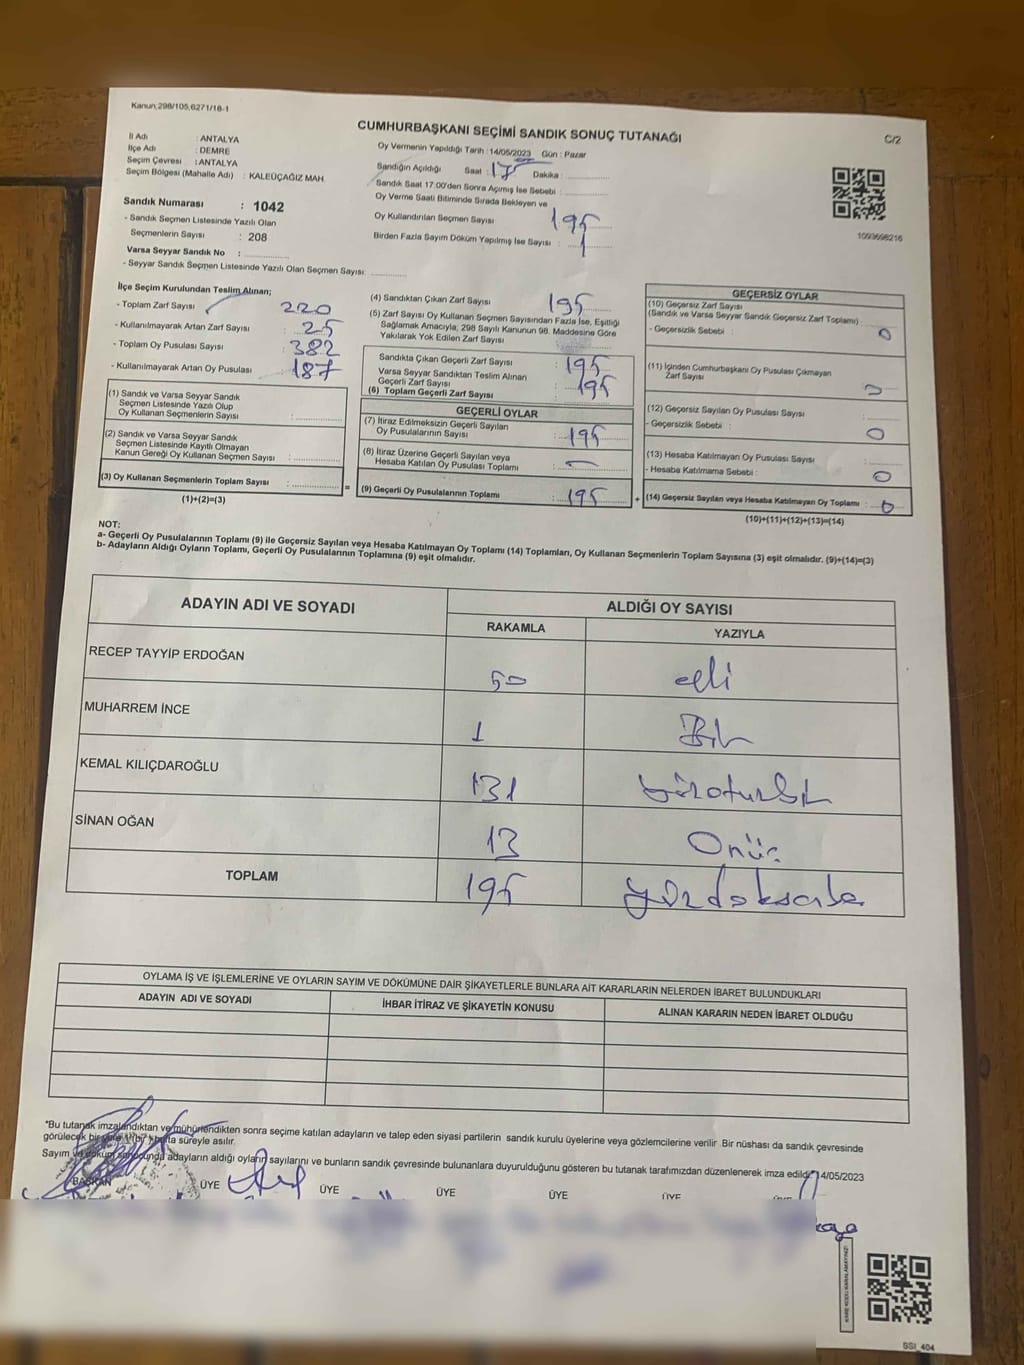 Kanun,298/105,6271/18-1
CUMHURBAŞKANI SEÇİMİ SANDIK SONUÇ TUTANAĞI
C/2
İl Adı : ANTALYA
İlçe Adı : DEMRE
Seçim Çevresi : ANTALYA
Seçim Bölgesi (Mahalle Adı) : KALEÜÇAĞIZ MAH.
Sandık Numarası : 1042
- Sandık Seçmen Listesinde Yazılı Olan
Seçmenlerin Sayısı : 208
Varsa Seyyar Sandık No :
- Seyyar Sandık Seçmen Listesinde Yazılı Olan Seçmen Sayısı:
Oy Vermenin Yapıldığı Tarih : 14/05/2023 Gün : Pazar
Sandığın Açıldığı Saat : 17 Dakika :
Sandık Saat 17:00'den Sonra Açımış İse Sebebi :
Oy Verme Saati Bitiminde Sırada Bekleyen ve
Oy Kullandırılan Seçmen Sayısı 195
Birden Fazla Sayım Döküm Yapılmış İse Sayısı : 1
1093698216
İlçe Seçim Kurulundan Teslim Alınan;
- Toplam Zarf Sayısı 220
- Kullanılmayarak Artan Zarf Sayısı : 25
- Toplam Oy Pusulası Sayısı : 382
- Kullanılmayarak Artan Oy Pusulası : 187
(1) Sandık ve Varsa Seyyar Sandık
Seçmen Listesinde Yazılı Olup
Oy Kullanan Seçmenlerin Sayısı :
(2) Sandık ve Varsa Seyyar Sandık
Seçmen Listesinde Kayıtlı Olmayan
Kanun Gereği Oy Kullanan Seçmen Sayısı :
(3) Oy Kullanan Seçmenlerin Toplam Sayısı :
(1)+(2)=(3)
=
(4) Sandıktan Çıkan Zarf Sayısı 195
(5) Zarf Sayısı Oy Kullanan Seçmen Sayısından Fazla İse, Eşitliği
Sağlamak Amacıyla; 298 Sayılı Kanunun 98. Maddesine Göre
Yakılarak Yok Edilen Zarf Sayısı
Sandıkta Çıkan Geçerli Zarf Sayısı : 195
Varsa Seyyar Sandıktan Teslim Alınan
Geçerli Zarf Sayısı
(6) Toplam Geçerli Zarf Sayısı : 195
GEÇERLİ OYLAR
(7) İtiraz Edilmeksizin Geçerli Sayılan
Oy Pusulalarının Sayısı : 195
(8) İtiraz Üzerine Geçerli Sayılan veya
Hesaba Katılan Oy Pusulası Toplamı : –
(9) Geçerli Oy Pusulalarının Toplamı : 195
+
GEÇERSİZ OYLAR
(10) Geçersiz Zarf Sayısı
(Sandık ve Varsa Seyyar Sandık Geçersiz Zarf Toplamı) :
- Geçersizlik Sebebi : 0
(11) İçinden Cumhurbaşkanı Oy Pusulası Çıkmayan
Zarf Sayısı : 0
(12) Geçersiz Sayılan Oy Pusulası Sayısı :
- Geçersizlik Sebebi : 0
(13) Hesaba Katılmayan Oy Pusulası Sayısı :
- Hesaba Katılmama Sebebi : 0
(14) Geçersiz Sayılan veya Hesaba Katılmayan Oy Toplamı : 0
(10)+(11)+(12)+(13)=(14)
NOT:
a- Geçerli Oy Pusulalarının Toplamı (9) ile Geçersiz Sayılan veya Hesaba Katılmayan Oy Toplamı (14) Toplamları, Oy Kullanan Seçmenlerin Toplam Sayısına (3) eşit olmalıdır. (9)+(14)=(3)
b- Adayların Aldığı Oyların Toplamı, Geçerli Oy Pusulalarının Toplamına (9) eşit olmalıdır.
ADAYIN ADI VE SOYADI
ALDIĞI OY SAYISI
RAKAMLA YAZIYLA
RECEP TAYYİP ERDOĞAN 50 elli
MUHARREM İNCE 1 Bir
KEMAL KILIÇDAROĞLU 131 yüzotuzbir
SİNAN OĞAN 13 Onüç
TOPLAM 195 yüzdoksanbeş
OYLAMA İŞ VE İŞLEMLERİNE VE OYLARIN SAYIM VE DÖKÜMÜNE DAİR ŞİKAYETLERLE BUNLARA AİT KARARLARIN NELERDEN İBARET BULUNDUKLARI
ADAYIN ADI VE SOYADI İHBAR İTİRAZ VE ŞİKAYETİN KONUSU ALINAN KARARIN NEDEN İBARET OLDUĞU
*Bu tutanak imzalandıktan ve mühürlendikten sonra seçime katılan adayların ve talep eden siyasi partilerin sandık kurulu üyelerine veya gözlemcilerine verilir Bir nüshası da sandık çevresinde
görülecek bir süreyle asılır.
Sayım ve adayların aldığı oyların sayılarını ve bunların sandık çevresinde bulunanlara duyurulduğunu gösteren bu tutanak tarafımızdan düzenlenerek imza edildi. 14/05/2023
BAŞKAN ÜYE ÜYE ÜYE ÜYE ÜYE
SSI_404